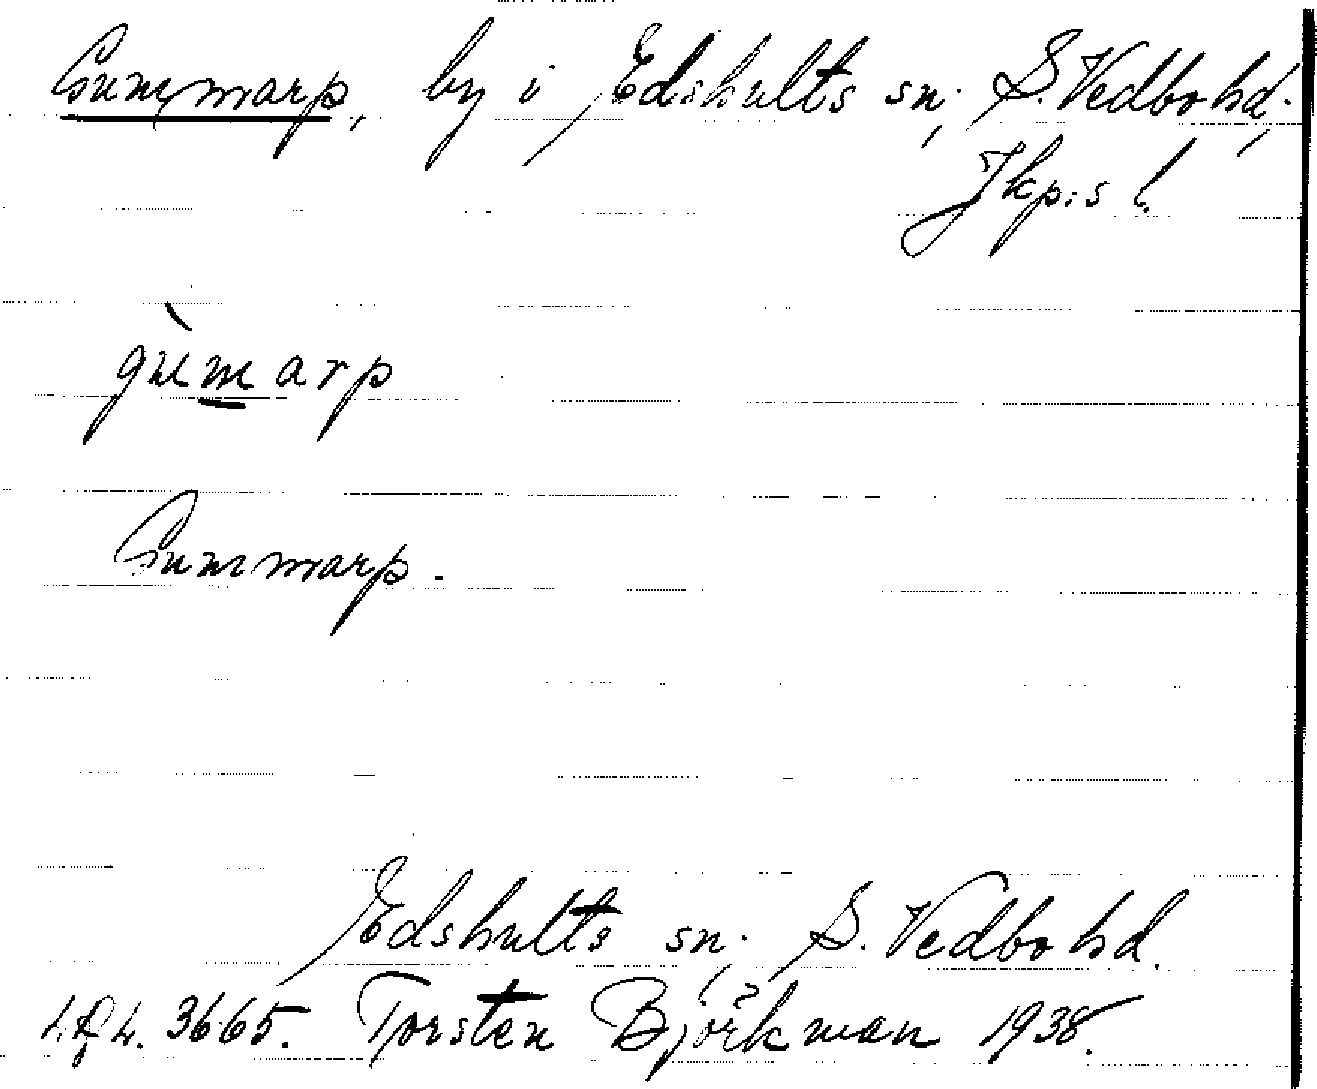 Gummarp, by i Edshults sn., S. Vedbo hd.,
Jkp:s l.
gùmarp
Gummarp.
Edshults sn., S. Vedbo hd.
3665. Torsten Björkman 1938.